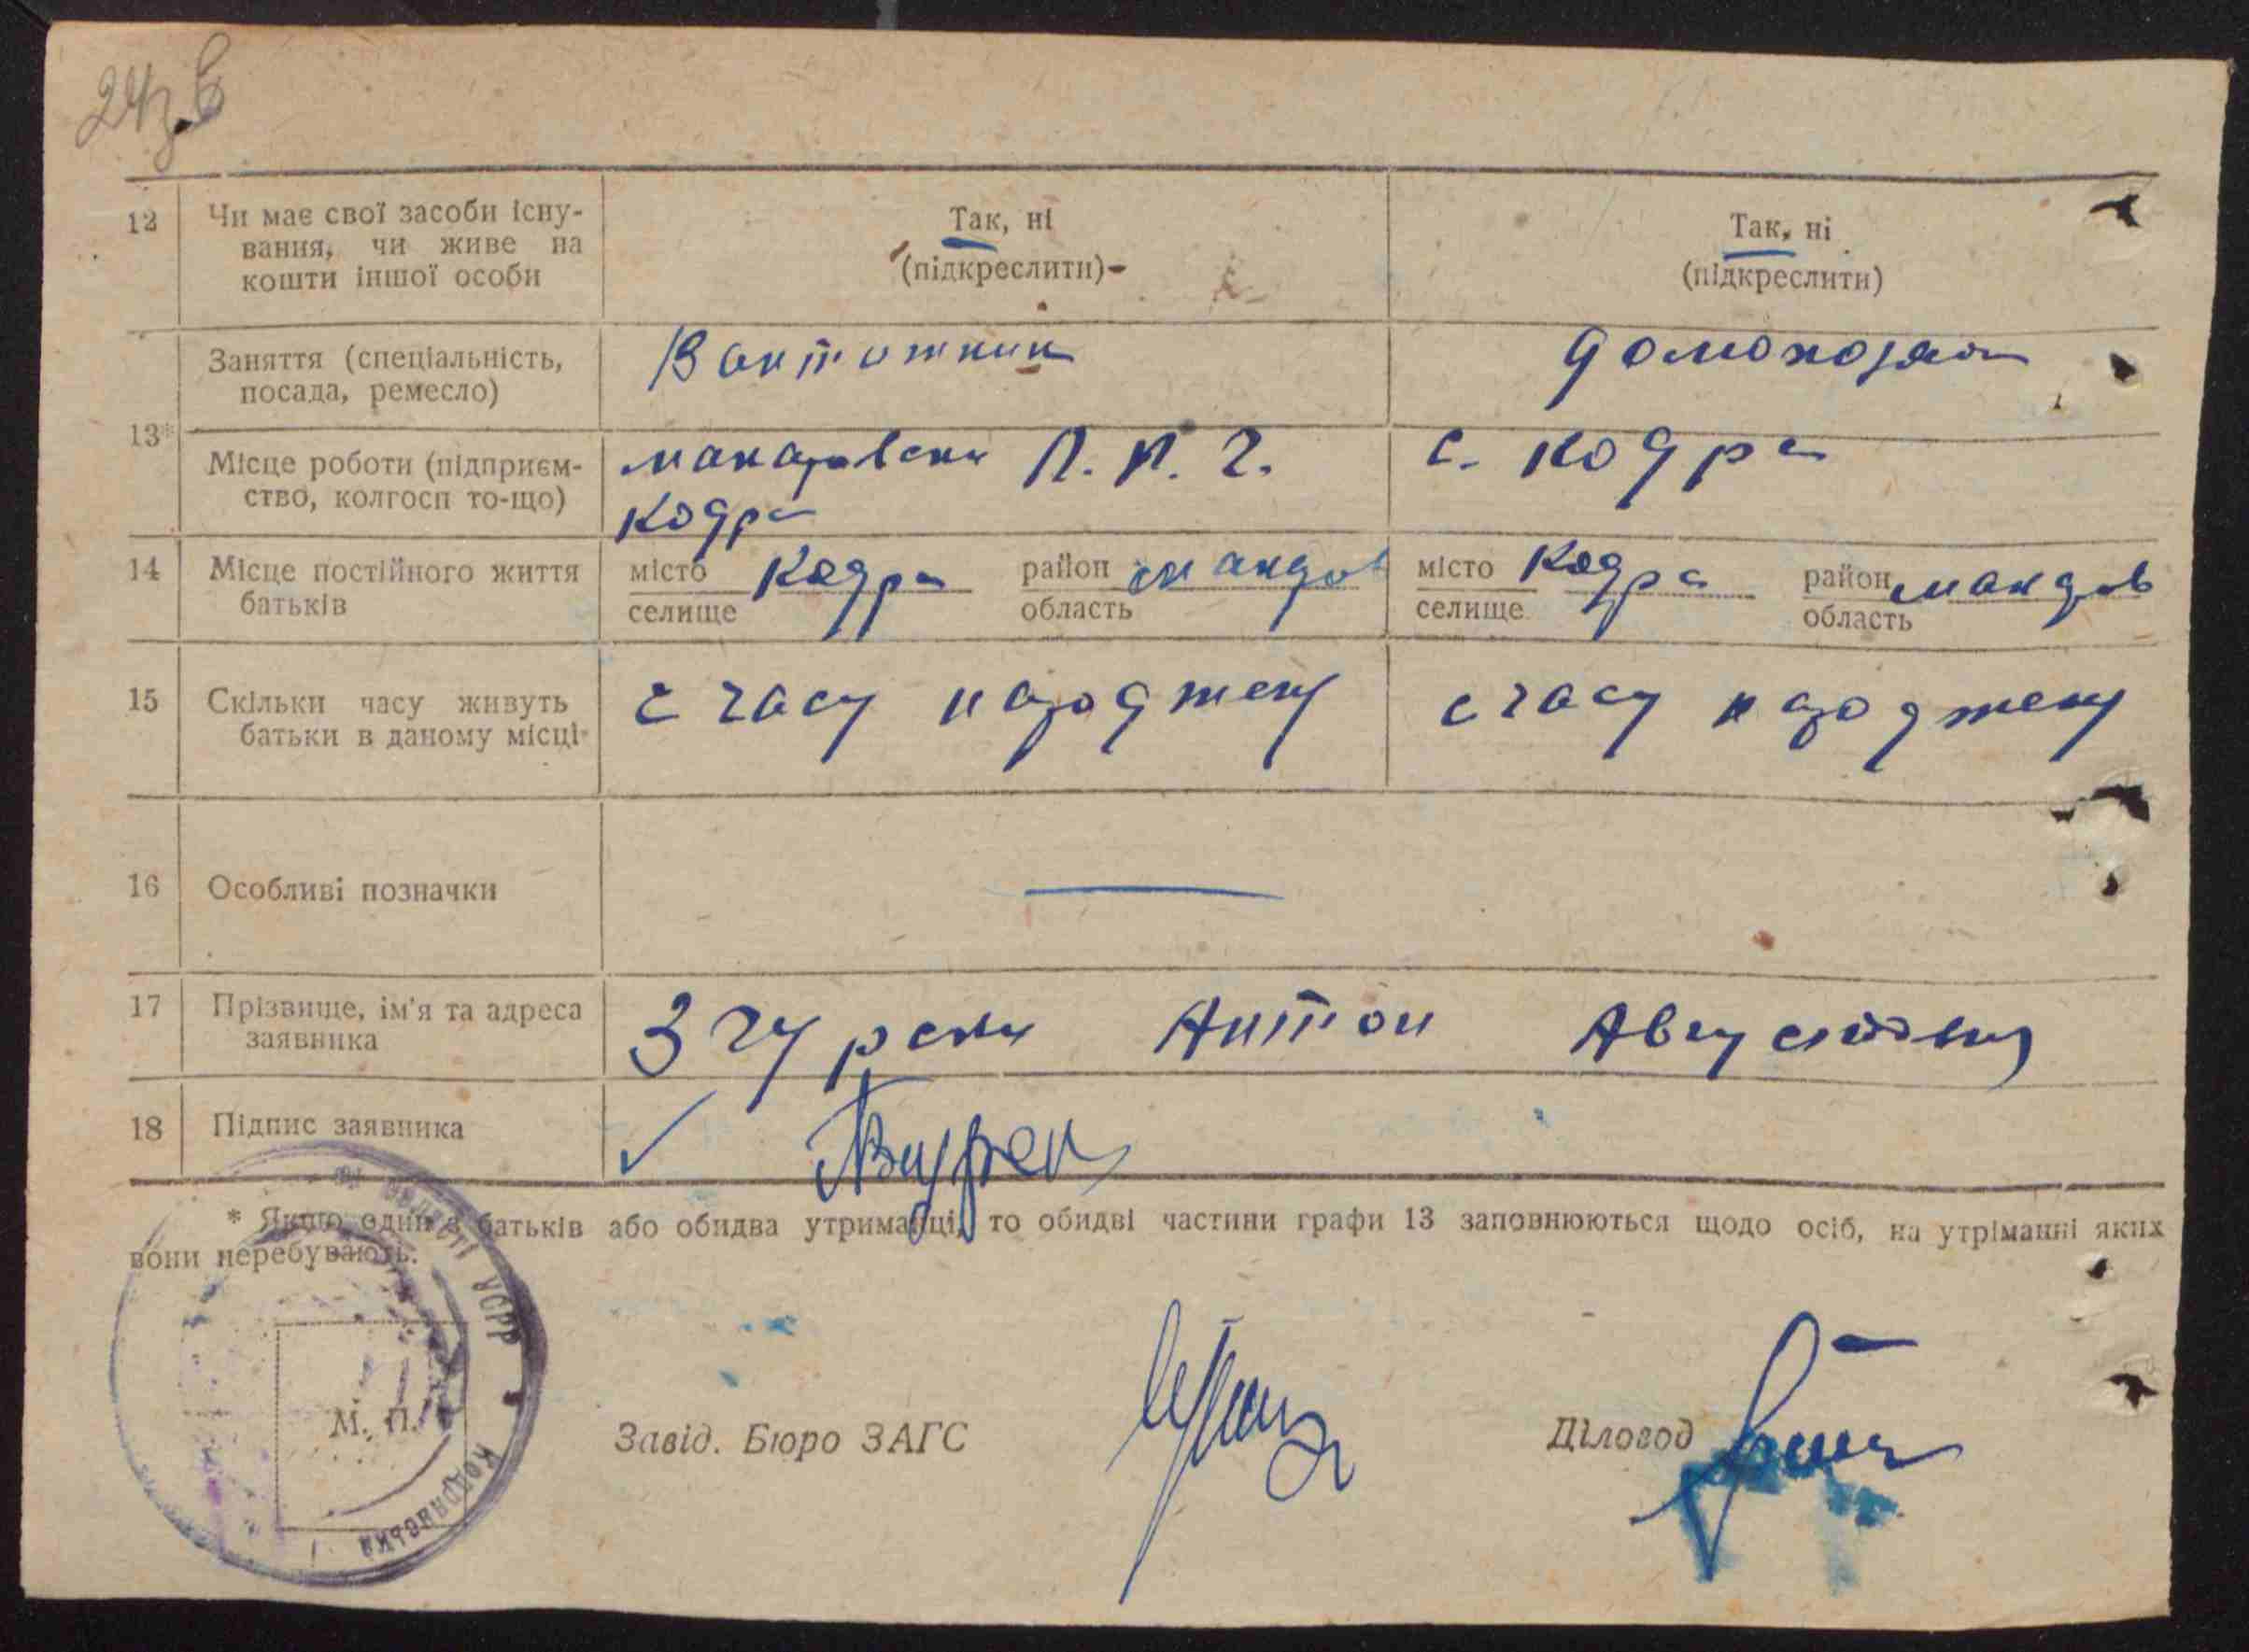 24зв
12 Чи має свої засоби існу-
вання, чи живе на
кошти іншої особи
Так, ні
(підкреслити)
Так, ні
(підкреслити)
13*
Заняття (спеціальність,
посада, ремесло)
домохозяй
Місце роботи (підприєм-
ство, колгосп то-що)
Кодра
с. Кодра
14 Місце постійного життя
батьків
місто Кодра район
селище область
місто Кодра район
селище область
15 Скільки часу живуть
батьки в даному місці
с часу народжену
с часу народжену
16 Особливі позначки
17 Прізвище, ім'я та адреса
заявника
Згурски Антон
18 Підпис заявника
* Якщо один з батьків або обидва утриманці, то обидві частини графи 13 заповнюються щодо осіб, на утріманні яких
вони перебувають.
УСРР
Кодрянська
М. П.
Завід. Бюро ЗАГС
Діловод